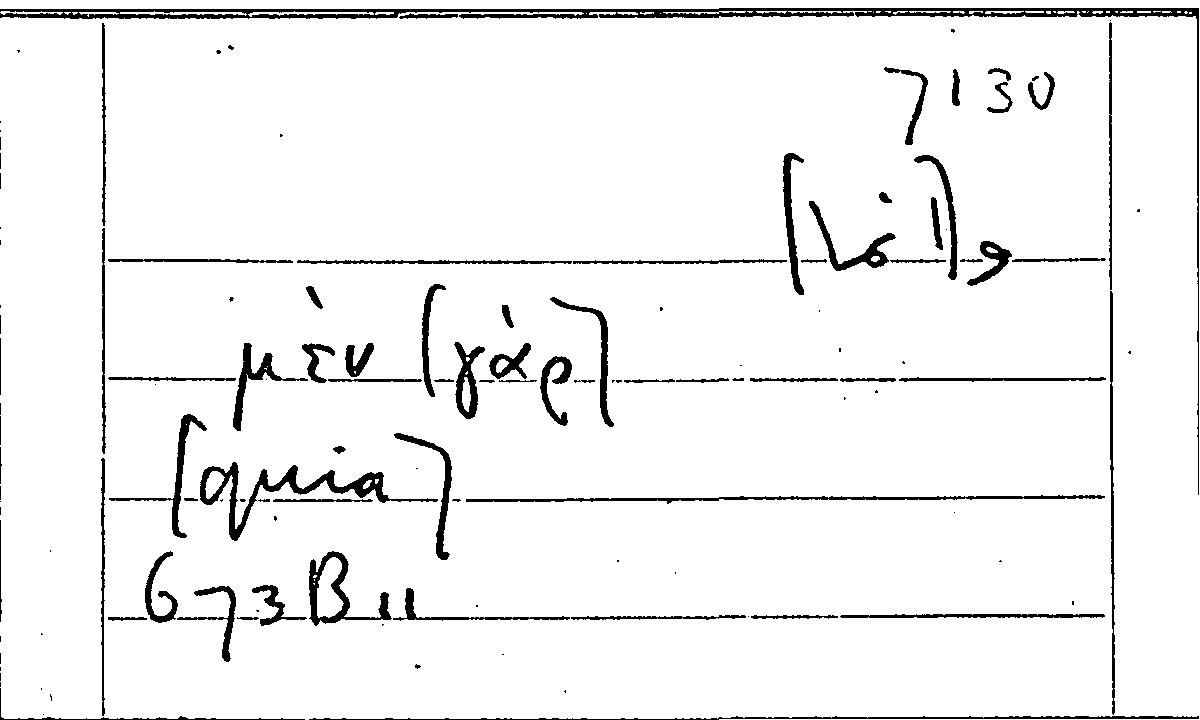 7130
μὲν [γάρ]
[quia]
673B11